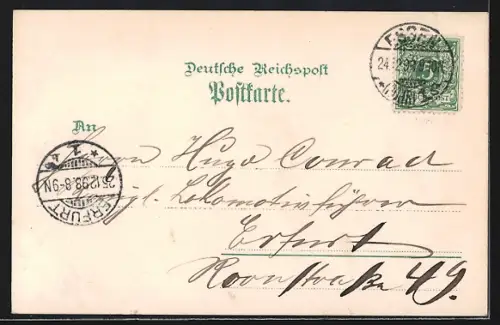 Deutsche Reichspost
Postkarte.
ESSEN
24.12.98
5
An
Herrn Hugo Conrad
Kgl. Lokomotivführer
Erfurt
Roonstraße 49.
ERFURT
25.12.98. 8-9N
* 1 *